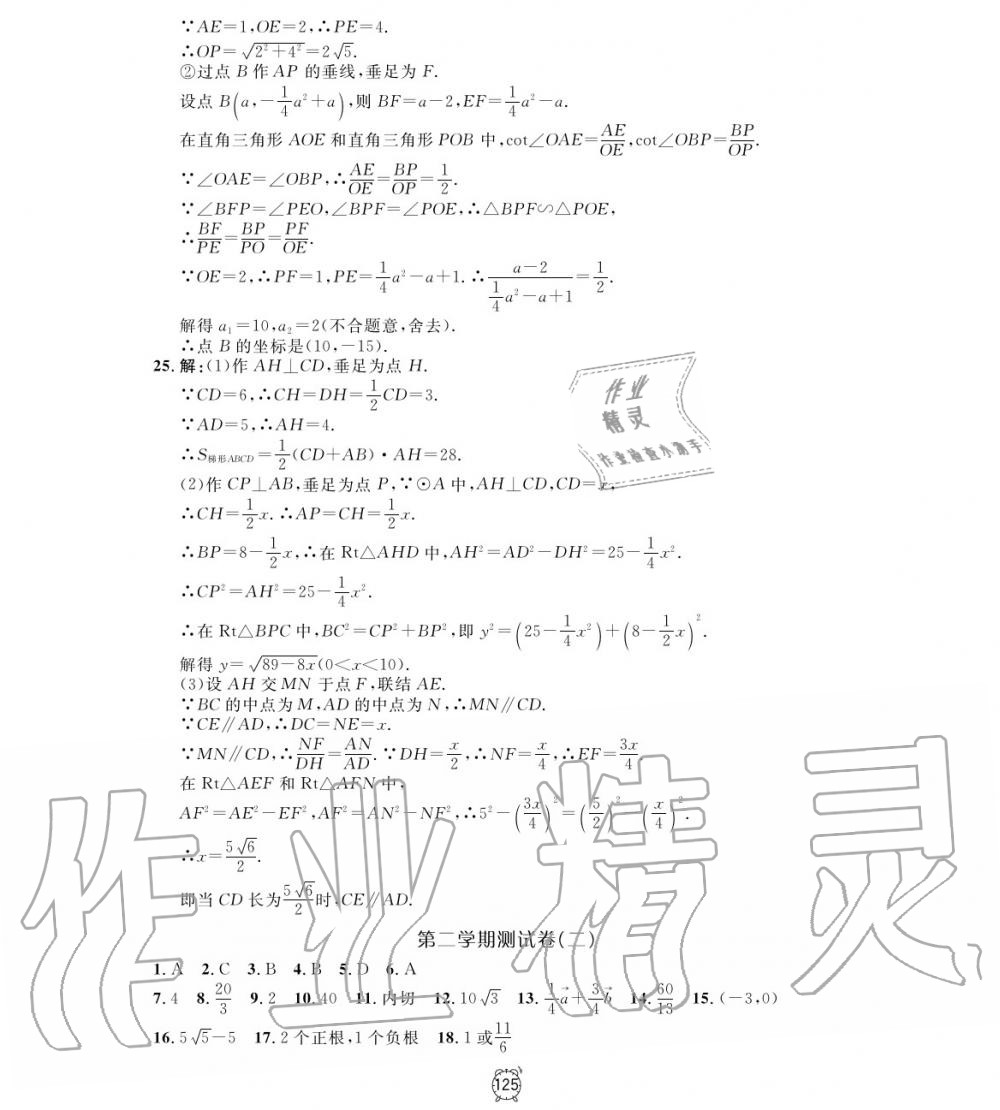 ∵AE=1,OE=2,∴PE=4.
∴OP=√(2²+4²)=2√5.
②过点 B 作 AP 的垂线,垂足为 F.
设点 B(a,-1/4a²+a),则 BF=a-2,EF=1/4a²-a.
在直角三角形 AOE 和直角三角形 POB 中,cot∠OAE=AE/OE,cot∠OBP=BP/OP.
∵∠OAE=∠OBP,∴AE/OE=BP/OP=1/2.
∵∠BFP=∠PEO,∠BPF=∠POE,∴△BPF∽△POE,
∴BF/PE=BP/PO=PF/OE.
∵OE=2,∴PF=1,PE=1/4a²-a+1.∴(a-2)/(1/4a²-a+1)=1/2.
解得 a₁=10,a₂=2(不合题意,舍去).
∴点 B 的坐标是(10,-15).
25.解:(1)作 AH⊥CD,垂足为点 H.
∵CD=6,∴CH=DH=1/2CD=3.
∵AD=5,∴AH=4.
∴S梯形ABCD=1/2(CD+AB)·AH=28.
(2)作 CP⊥AB,垂足为点 P,∵⊙A 中,AH⊥CD,CD=x,
∴CH=1/2x.∴AP=CH=1/2x.
∴BP=8-1/2x,∴在 Rt△AHD 中,AH²=AD²-DH²=25-1/4x².
∴CP²=AH²=25-1/4x².
∴在 Rt△BPC 中,BC²=CP²+BP²,即 y²=(25-1/4x²)+(8-1/2x)².
解得 y=√(89-8x)(0<x<10).
(3)设 AH 交 MN 于点 F,联结 AE.
∵BC 的中点为 M,AD 的中点为 N,∴MN∥CD.
∵CE∥AD,∴DC=NE=x.
∵MN∥CD,∴NF/DH=AN/AD.∵DH=x/2,∴NF=x/4,∴EF=3x/4.
在 Rt△AEF 和 Rt△AFN 中,
AF²=AE²-EF²,AF²=AN²-NF²,∴5²-(3x/4)²=(5/2)²-(x/4)².
∴x=5√6/2.
即当 CD 长为5√6/2时,CE∥AD.
第二学期测试卷(二)
1.A 2.C 3.B 4.B 5.D 6.A
7.4 8.20/3 9.2 10.40 11.内切 12.10√3 13.1/4a⃗+3/4b⃗ 14.60/13 15.(-3,0)
16.5√5-5 17.2个正根,1个负根 18.1或11/6
125
作业
精灵
作业检查小助手
作业精灵